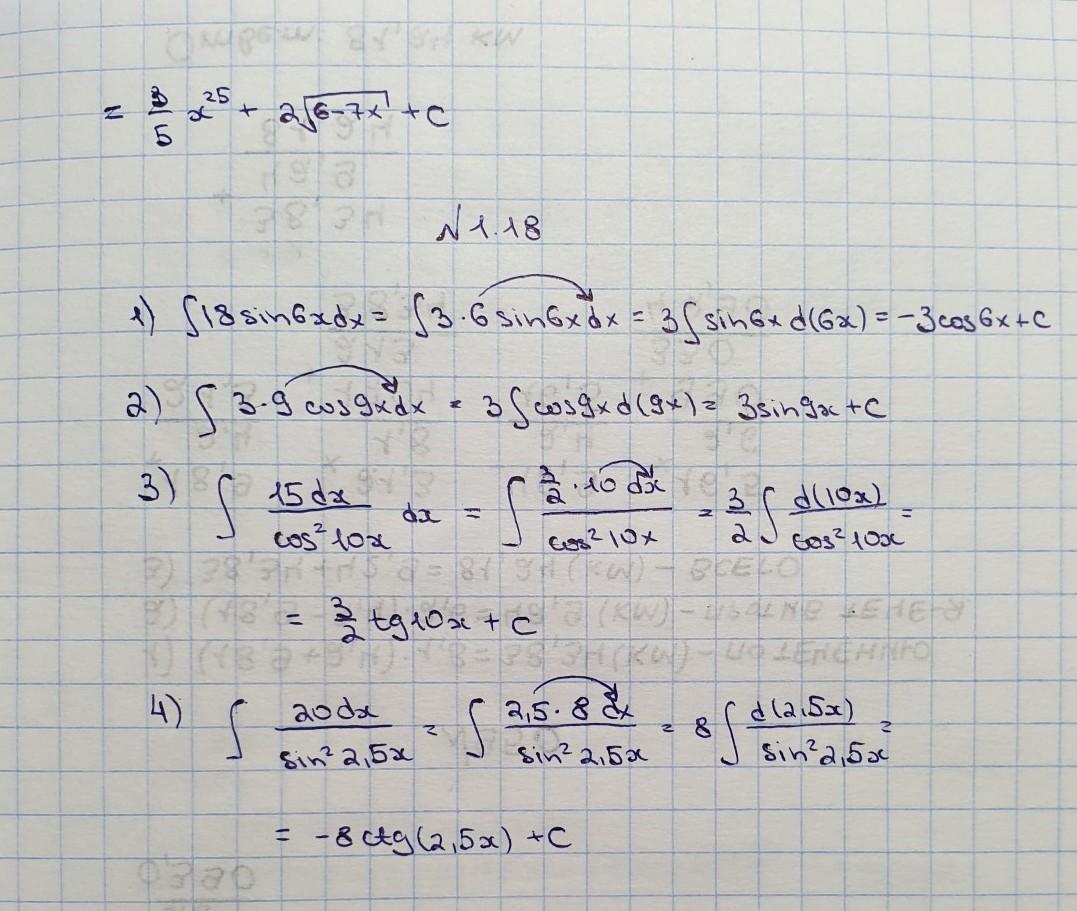 = 3/5 x^25 + 2√(6-7x) + C
№1.18
1) ∫18sin6xdx = ∫3·6sin6xdx = 3∫sin6xd(6x) = -3cos6x+C
2) ∫3·9cos9xdx = 3∫cos9xd(9x) = 3sin9x+C
3) ∫ 15dx/cos²10x dx = ∫ (3/2·10dx)/cos²10x = 3/2 ∫ d(10x)/cos²10x =
= 3/2 tg10x + C
4) ∫ 20dx/sin²2,5x = ∫ 2,5·8dx/sin²2,5x = 8∫ d(2,5x)/sin²2,5x =
= -8ctg(2,5x) + C